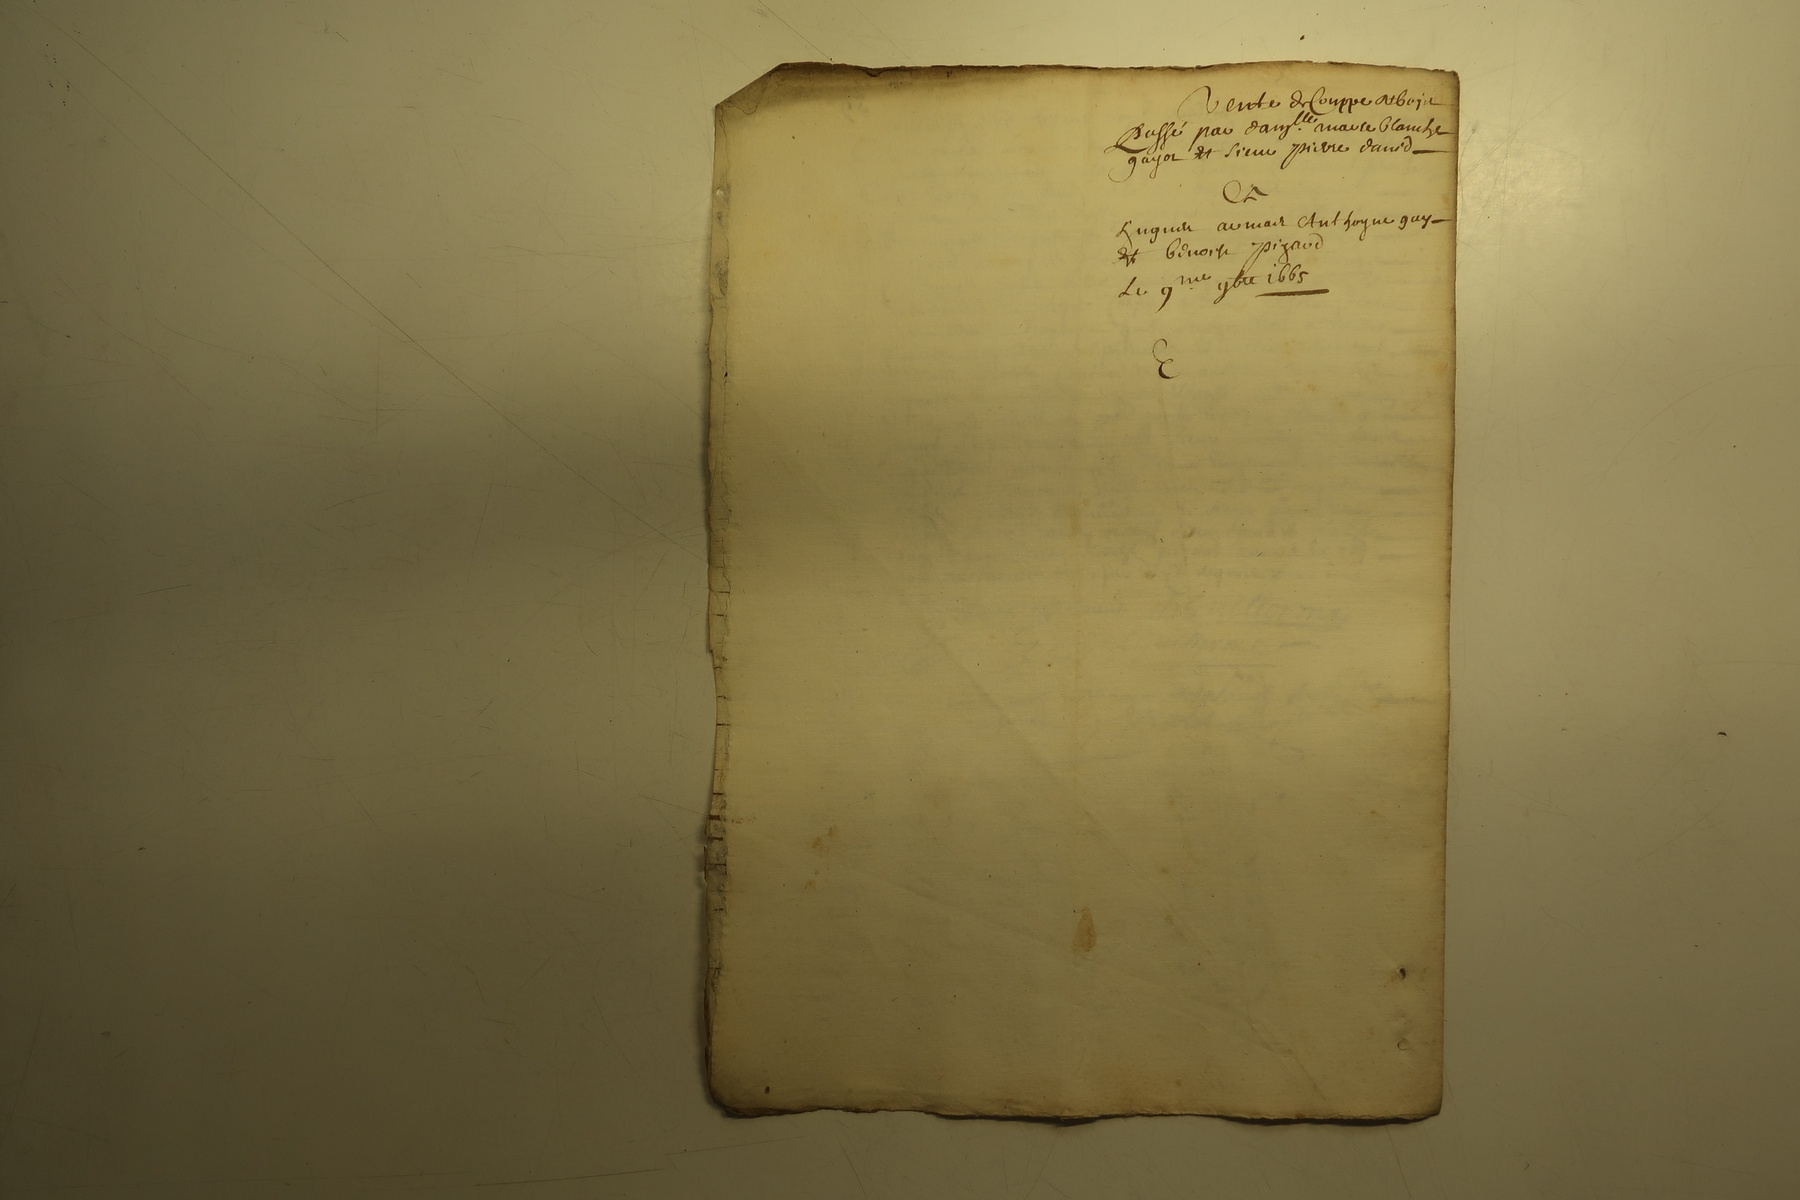 Vente de Couppe de boys
Passé par dam.lle marie blanche
gayot et sieur pierre david
A
hugues armait Anthoyne guy
et benoist pigaud
Le 9me 9bre 1665
E